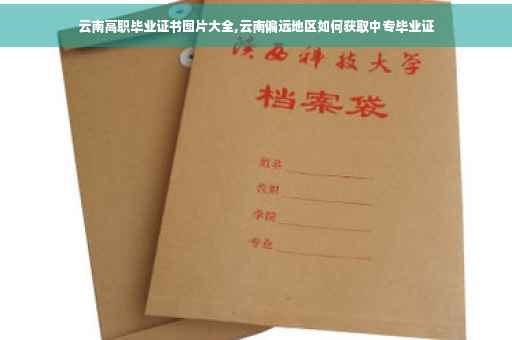 云南高职毕业证书图片大全,云南偏远地区如何获取中专毕业证
陕西科技大学
档案袋
姓名
学院
专业